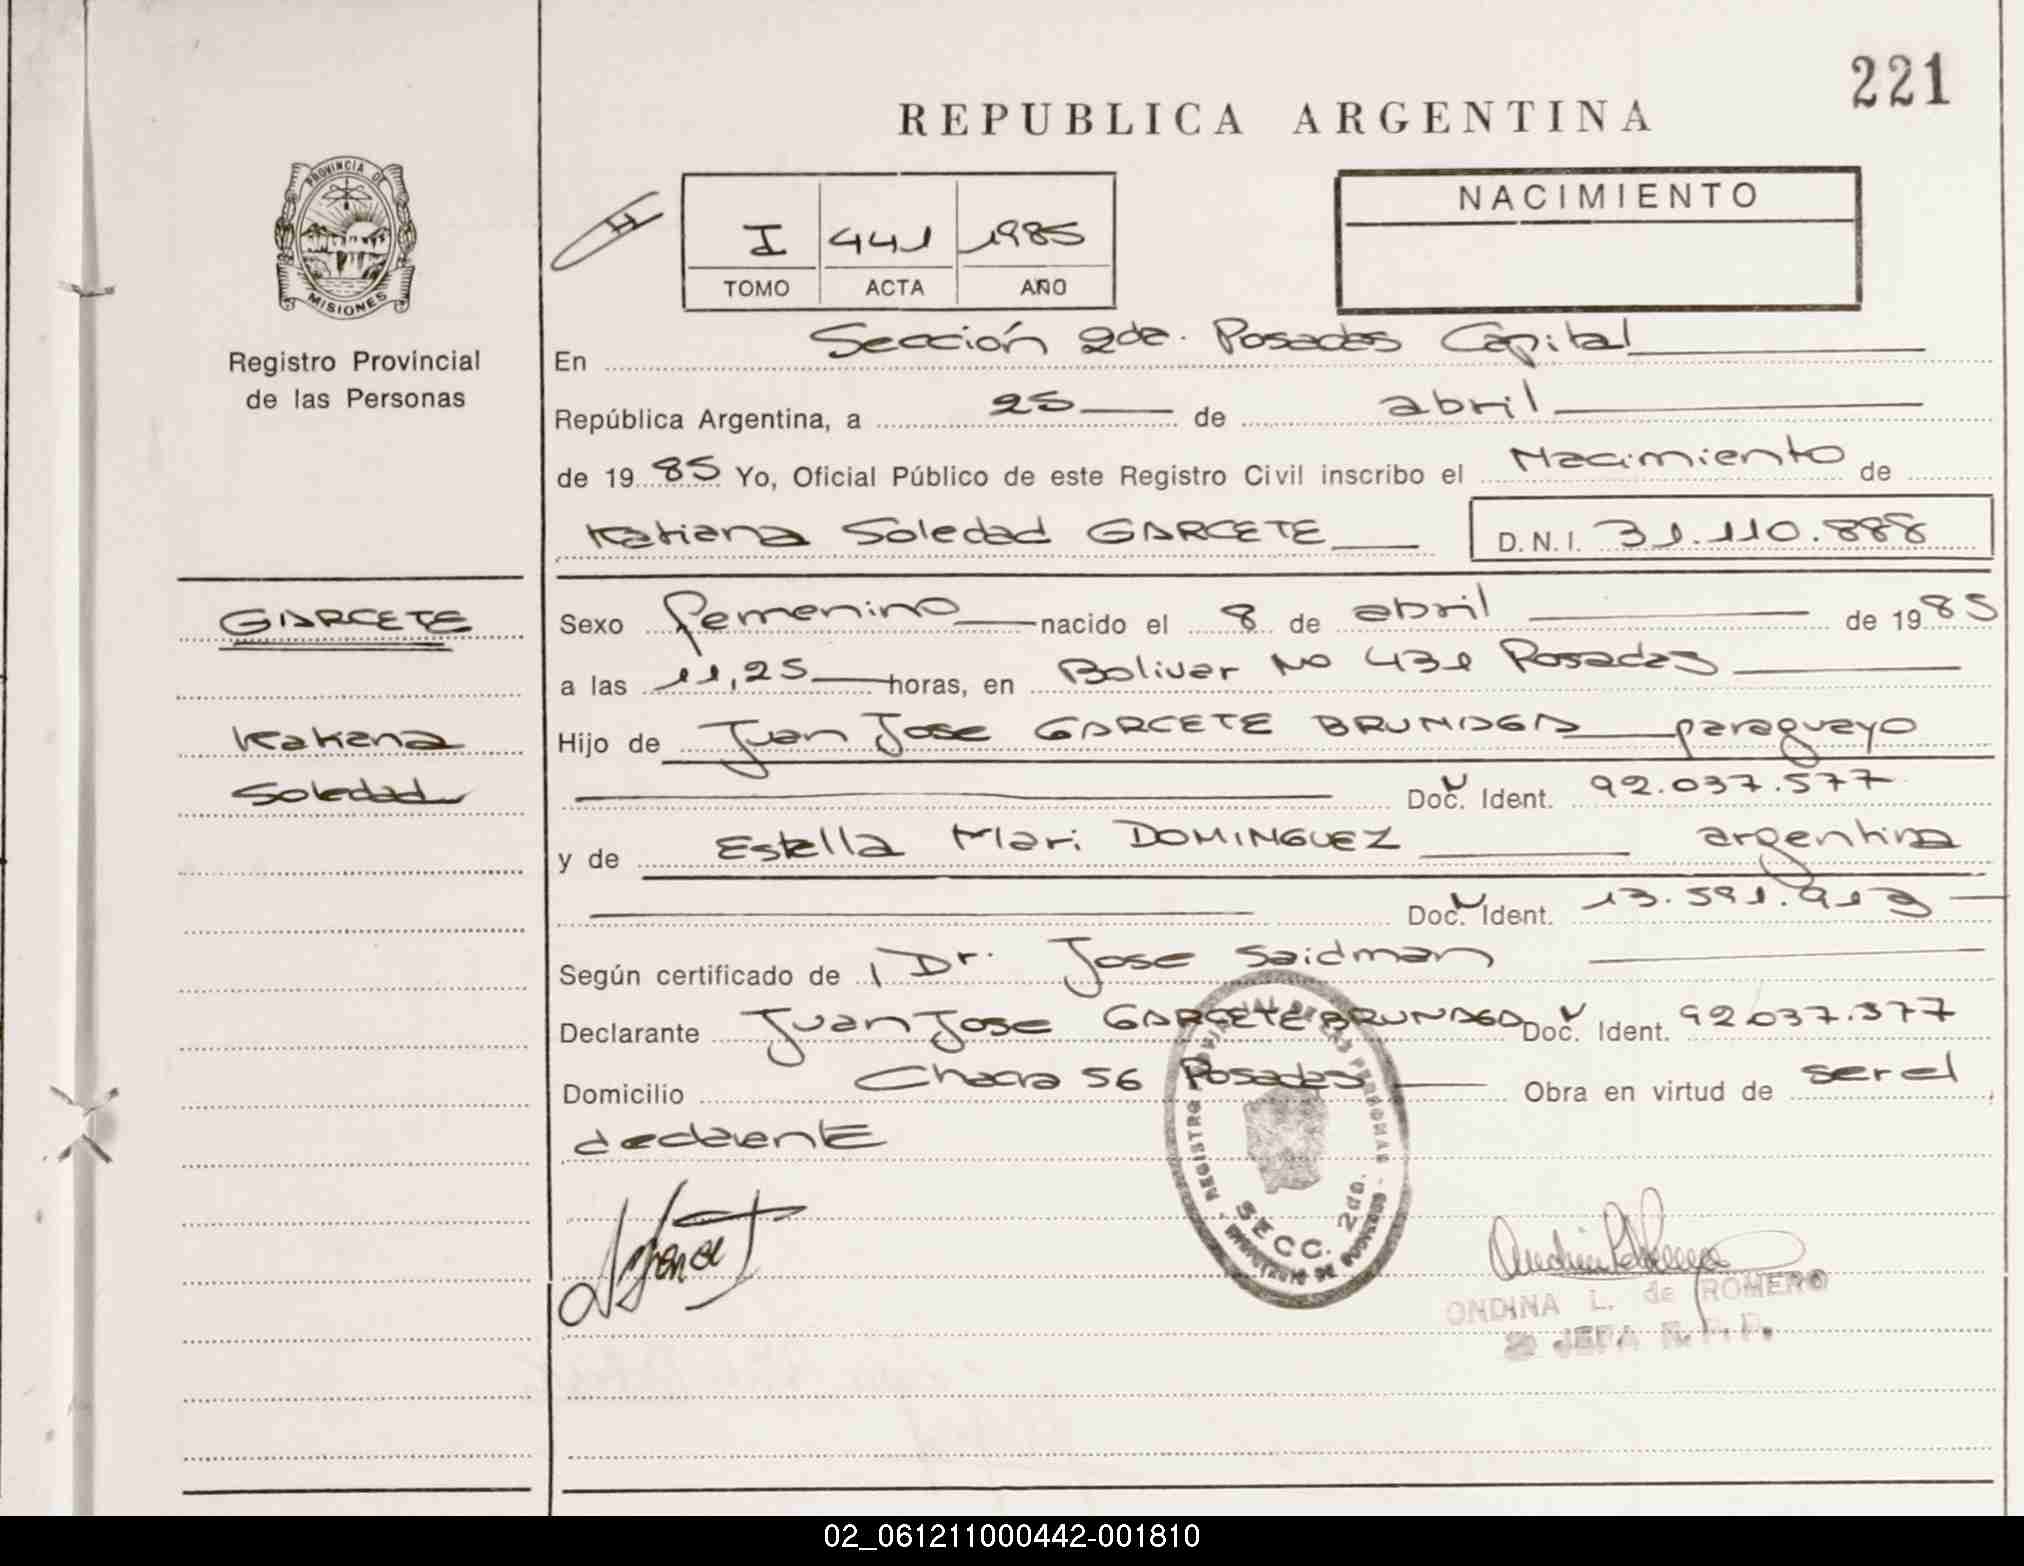 221
REPUBLICA ARGENTINA
PROVINCIA DE
MISIONES
Registro Provincial
de las Personas
I 441 1985
TOMO ACTA AÑO
NACIMIENTO
En Sección 2da. Posadas Capital
República Argentina, a 25 de abril
de 1985 Yo, Oficial Público de este Registro Civil inscribo el Nacimiento de
Katiana Soledad GARCETE D.N.I. 31.110.888
GARCETE
Katiana
Soledad
Sexo femenino nacido el 8 de abril de 1985
a las 11,25 horas, en Bolivar No 431 Posadas
Hijo de Juan Jose GARCETE BRUNAGA paraguayo
Doc. Ident. 92.037.577
y de Estella Mari DOMINGUEZ argentina
Doc. Ident. 13.591.913
Según certificado de Dr. Jose Saidman
Declarante Juan Jose GARCETE BRUNAGA Doc. Ident. 92.037.377
Domicilio Chacra 56 Posadas Obra en virtud de ser el
declarante
REGISTRO PERSONAS
SECC. 2da.
ONDINA L. de ROMERO
JEFA R.P.P.
02_061211000442-001810